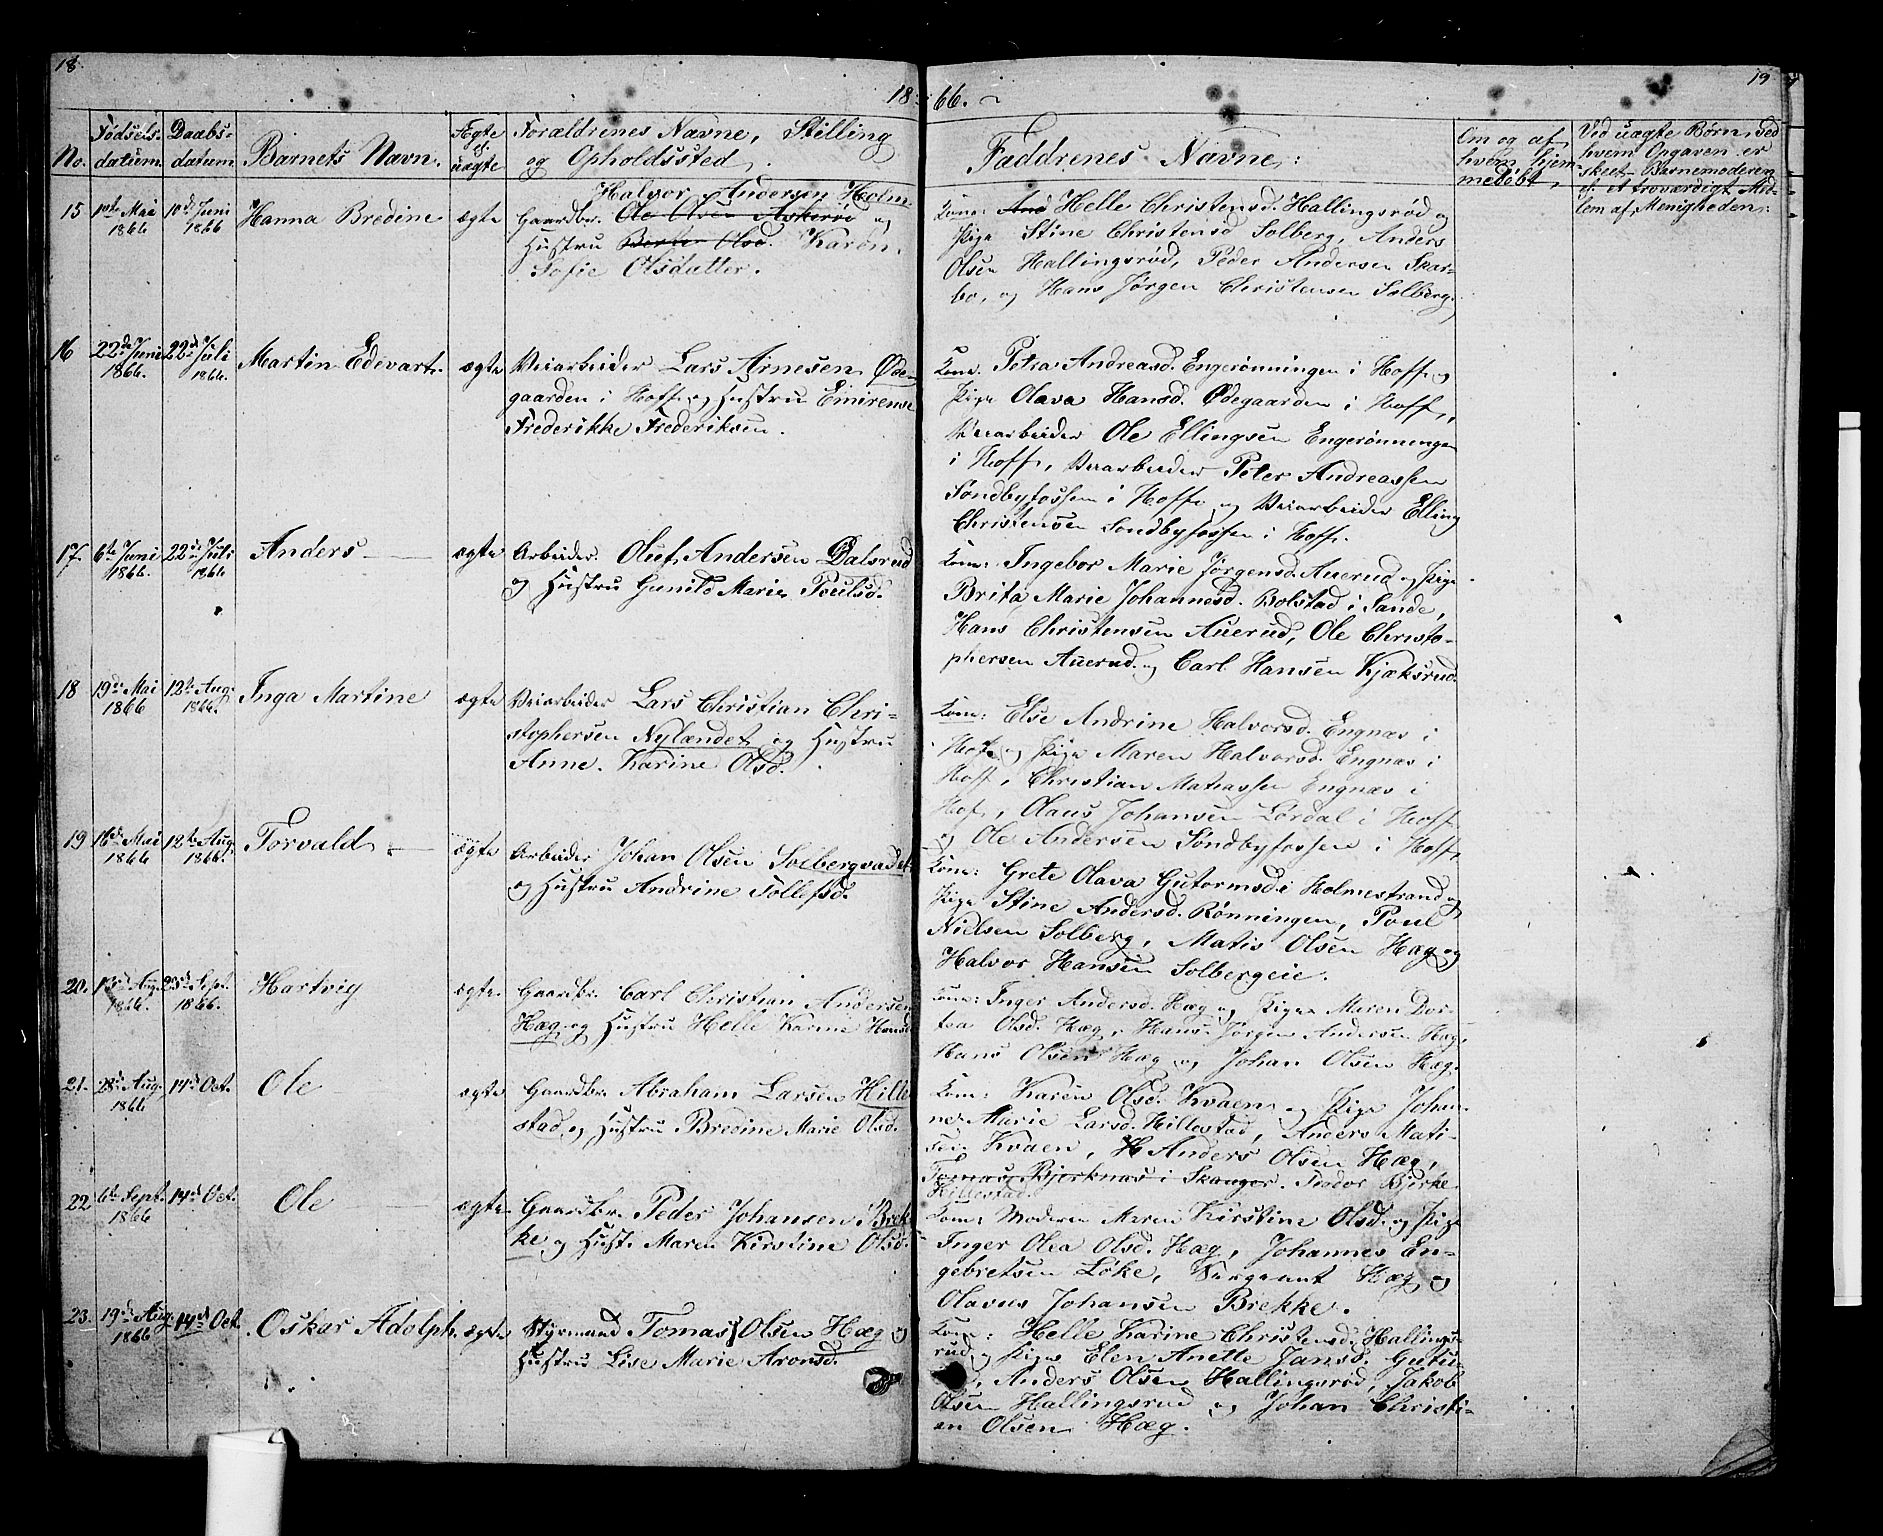 18
19
18 66.
No.
Fødsels-
datum.
Daabs-
datum
Barnets Navn.
Ægte
el.
uægte
Forældrenes Navne, Stilling
og Opholdssted.
Faddrenes Navne:
Om og af
hvem hjem-
medøbt.
Ved uægte Børn, ved
hvem Opgaven er
skeet Barnemoderen
el. et troværdigt Med-
lem af Menigheden:
15 1ste Mai 1866 10d Juni 1866 Hanna Bredine ægte
Halvor Andersen Holm
Gaardbr. Ole Olsen Askerød og
Hustru Berthe Olsd. Karen
Sofie Olsdatter.
Kone: And Helle Christensd. Hallingsrød og
Pige Stine Christensd Solberg, Anders
Olsen Hallingsrød, Peder Andersen Skar-
bo, og Hans Jørgen Christensen Solberg.
16 22de Juni 1866. 22d Juli 1866. Martin Edevart. ægte
Veiarbeider Lars Arnesen Øde-
gaarden i Hoff og Hustru Emirense
Frederikke Frederiksen.
Kone. Petra Andreasd. Engerønningen i Hoff og
Pige Olava Hansd. Ødegaarden i Hoff,
Veiarbeider Ole Ellingsen Engerønningen
i Hoff, Veiarbeider Peter Andreassen
Søndbyfossen i Hoff og Veiarbeider Elling
Christensen Sondbyfossen i Hoff.
17. 6te Juni 1866. 22d Juli 1866 Anders ægte
Arbeider Oluf Andersen Dalsrud
og Hustru Gunild Marie Poulsd.
Kone: Ingebor Marie Jørgensd. Auerud og Pige
Brita Marie Johannesd. Bolstad i Sande,
Hans Christensen Auerud, Ole Christo-
phersen Auerud og Carl Hansen Kjæksrud.
18 19de Mai 1866 12te Aug. 1866. Inga Martine ægte
Veiarbeider Lars Christian Chri-
stophersen Nylændet og Hustru
Anne Karine Olsd.
Kone: Else Andrine Halvorsd. Engnæs i
Hof og Pige Maren Halvorsd. Engnæs i
Hoff, Christian Matiassen Engnæs i
Hof, Olaus Johansen Lørdal i Hoff
og Ole Andersen Søndbyfossen i Hoff,
19 16d Mai 1866 12te Aug. 1866. Torvald ægte
Arbeider Johan Olsen Solbergvadet
og Hustru Andrine Tollefsd.
Kone: Grete Olava Gutormsd. i Holmestrand og
Pige Stine Andersd. Rønningen, Poul
Nielsen Solberg, Matis Olsen Hæg og
Halvor Hansen Solbergeie.
20. Aug. 1866. Sept. 1866. Hartvig ægte.
Gaardbr. Carl Christian Andersen
Hæg og Hustru Helle Karine Hansd
Kone: Inger Andersd. Hæg og Pige Maren Dor-
tea Olsd. Hæg, Hans Jørgen Andersen Hæg,
Hans Olsen Hæg og Johan Olsen Hæg.
21. 28d Aug. 1866 14d Oct. Ole ægte
Gaardbr. Abraham Larsen Hille-
stad og Hustru Bredine Marie Olsd.
Kone: Karen Olsd. Kvaen og Pige Johan-
ne Marie Larsd. Hillestad, Anders Mati-
sen Kvaen, H Anders Olsen Hæg,
Tomas Bjerknas i Skanger. Bjerke
Hillestad.
22 6te Sept. 1866 14d Oct. Ole ægte
Gaardbr. Peder Johansen Brek-
ke og Hust. Maren Kirstine Olsd.
Kone: Moderen Maren Kirstine Olsd. og Pige
Inger Olea Olsd. Hæg, Johannes En-
gebretsen Løke, Sergeant Hæg og
Olavus Johansen Brekke.
23. 19de Aug. 1866 14d Oct. Oskar Adolph. ægte
Styrmand Tomas Olsen Hæg og
Hustru Lise Marie Aronsd.
Kone: Helle Karine Christensd. Hallings-
rud, og Pige Elen Anette Jansd.
Anders Olsen Hallingsrød, Jakob
Olsen Hallingsrud og Johan Christi-
an Olsen Hæg.